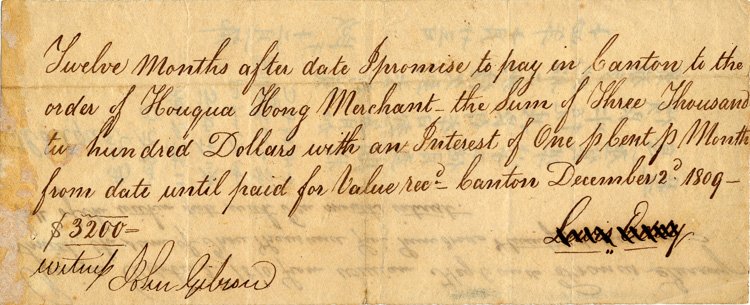 Twelve Months after date I promise to pay in Canton to the
order of Houqua Hong Merchant - the Sum of Three Thousand
two hundred Dollars with an Interest of One p Cent p Month
from date until paid for Value recd Canton December 2d 1809 -
$3200 -
witness John Gibson